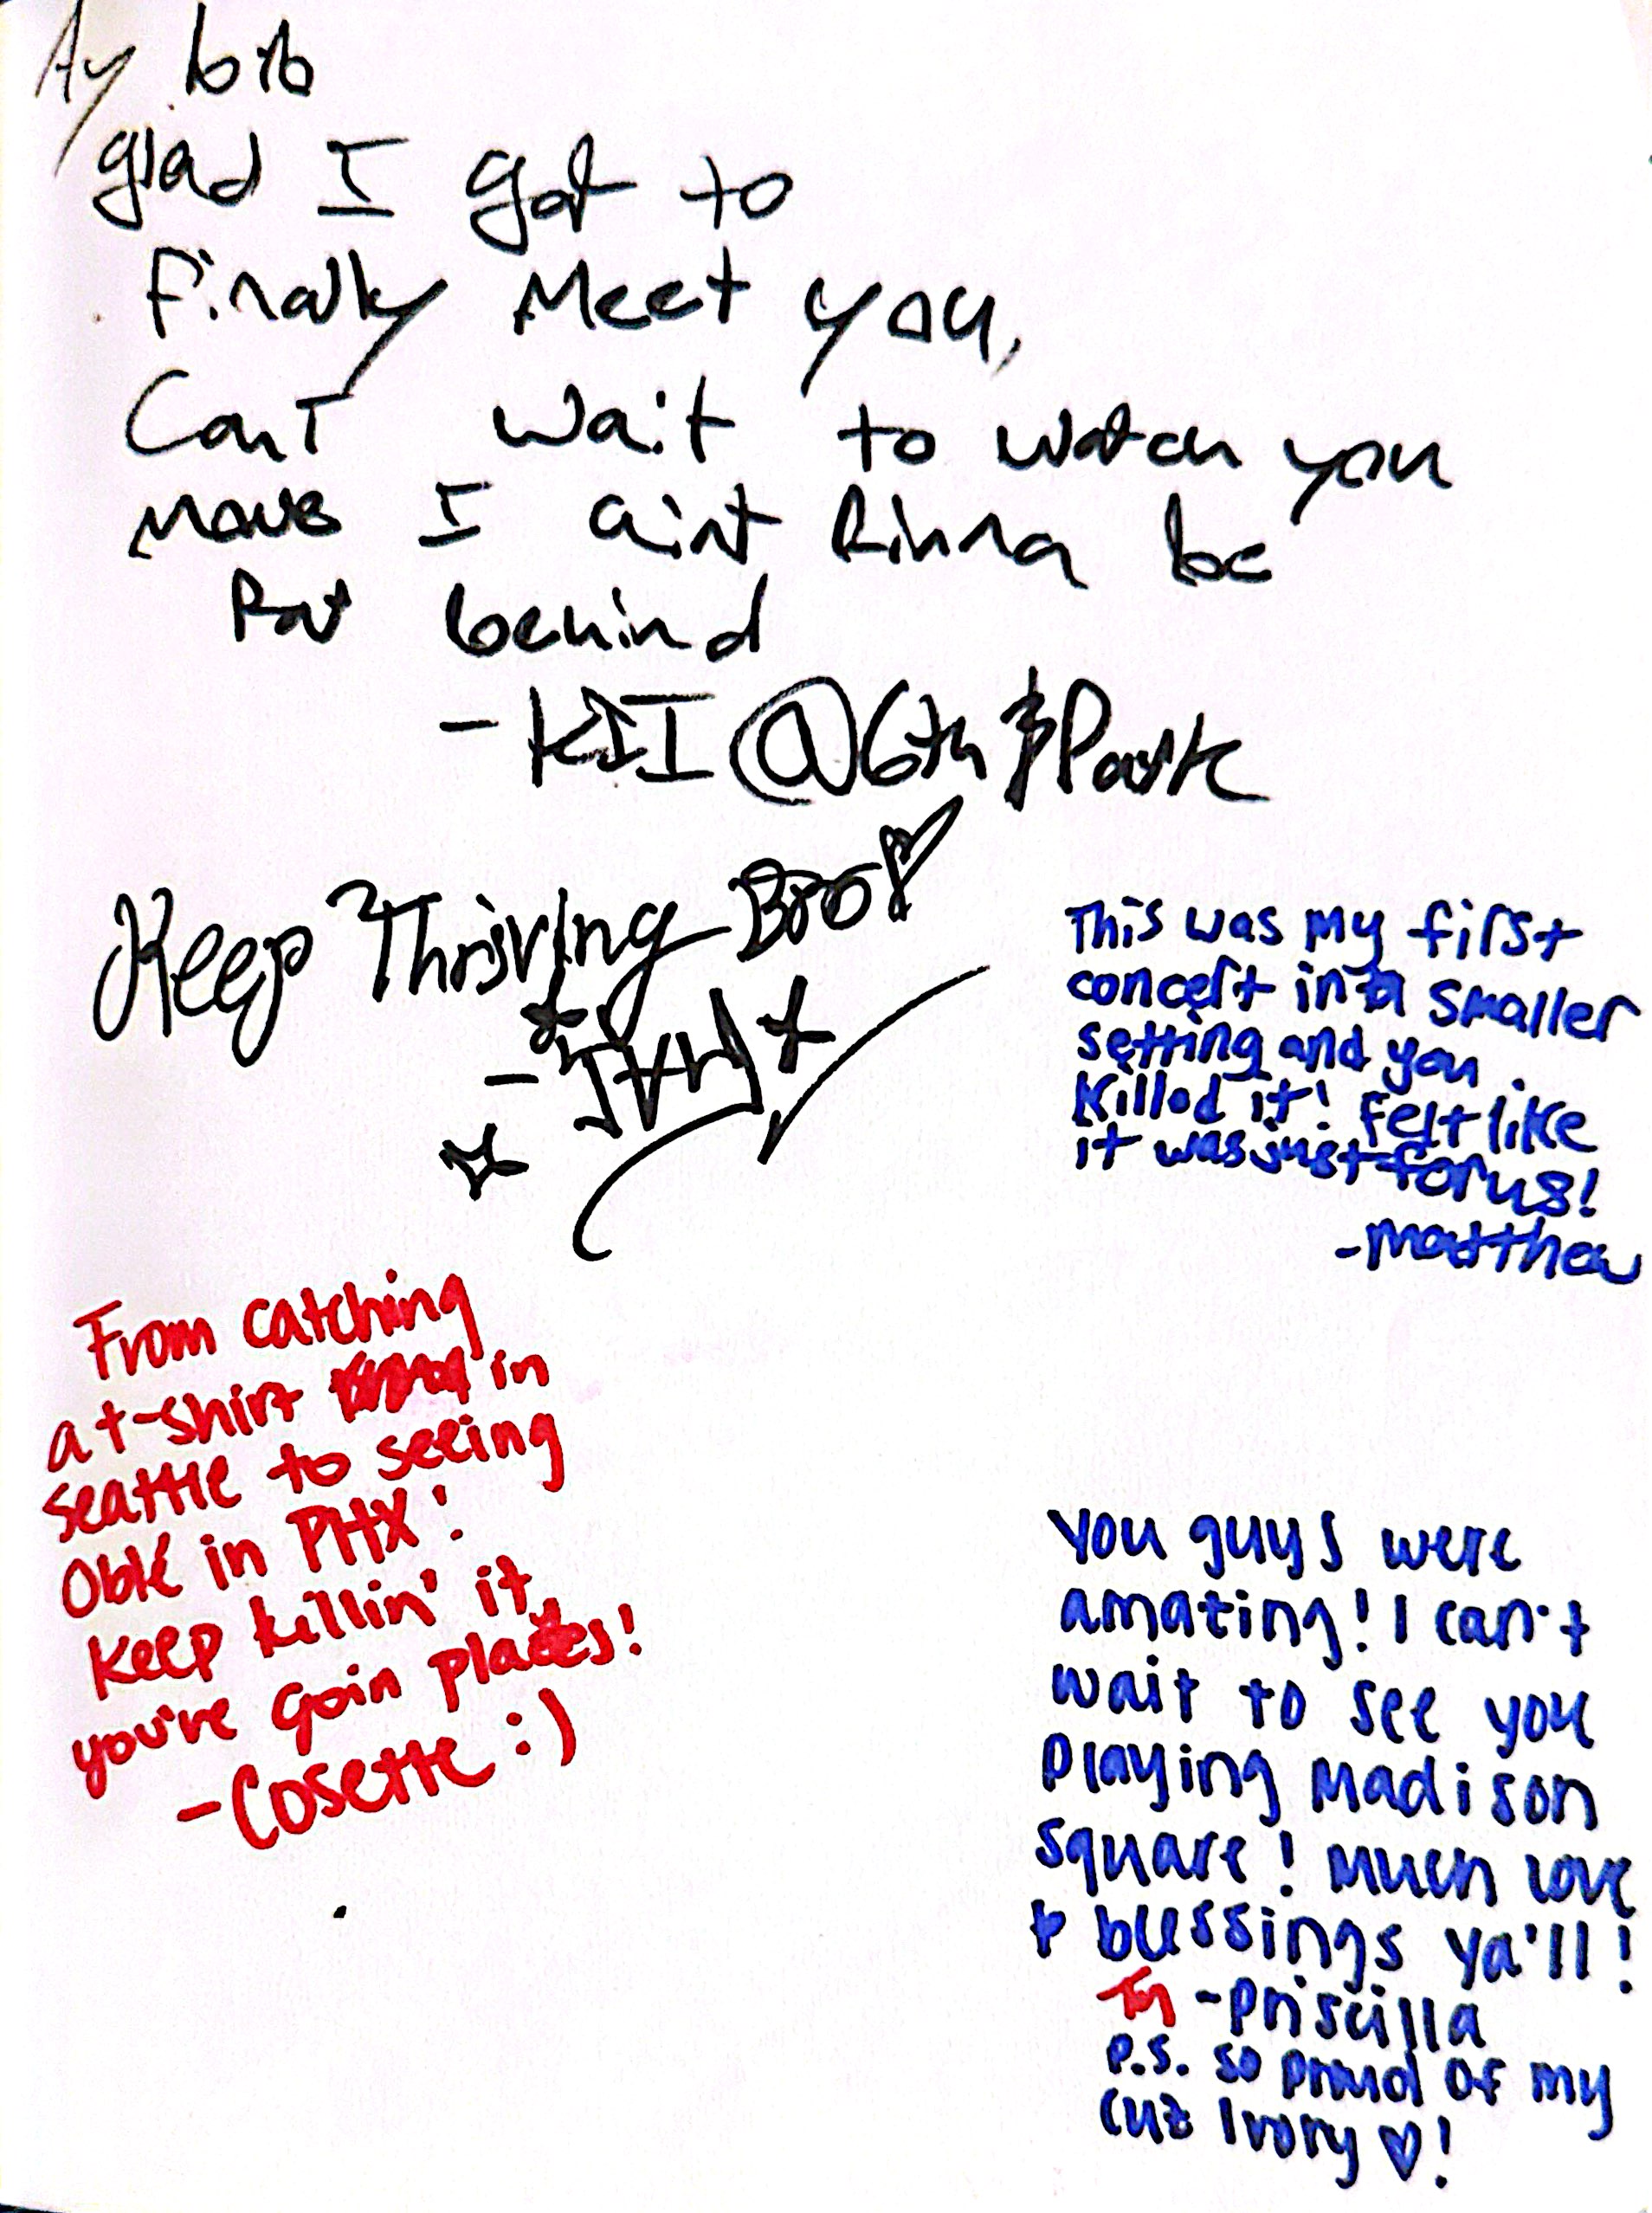 Ay bib
glad I got to
Finally Meet you,
Can't wait to watch you
move I aint finna be
Far behind
- KJI @6th & Park
Keep Thrisving Bro
This was my first
concert in a smaller
setting and you
Killed it! Felt like
it was just for us!
-Matthew
From catching
a t-shirt in
seattle to seeing
Oblé in PHX!
Keep killin' it,
you're goin places!
-Cosette :)
You guys were
amazing! I can't
wait to see you
playing Madison
Square! Much love
& blessings ya'll!
-Priscilla
P.S. so proud of my
cuz Ivory ♡!